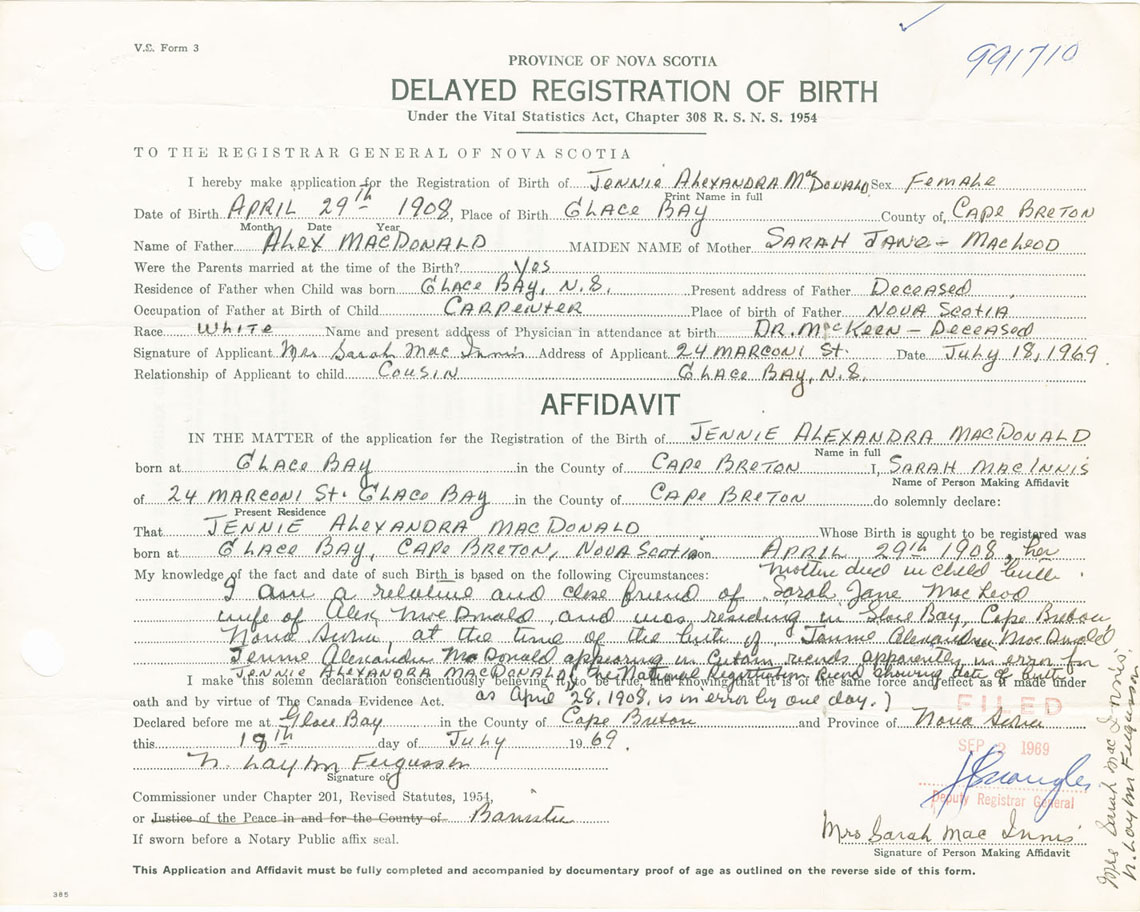 V.S. Form 3
991710
PROVINCE OF NOVA SCOTIA
DELAYED REGISTRATION OF BIRTH
Under the Vital Statistics Act, Chapter 308 R. S. N. S. 1954
TO THE REGISTRAR GENERAL OF NOVA SCOTIA
I hereby make application for the Registration of Birth of JENNIE ALEXANDRA MacDONALD Sex FEMALE
Print Name in full
Date of Birth APRIL 29th 1908, Place of Birth GLACE BAY County of, CAPE BRETON
Month Date Year
Name of Father ALEX MACDONALD MAIDEN NAME of Mother SARAH JANE - MACLEOD
Were the Parents married at the time of the Birth? YES
Residence of Father when Child was born GLACE BAY, N.S. Present address of Father DECEASED
Occupation of Father at Birth of Child CARPENTER Place of birth of Father NOVA SCOTIA
Race WHITE Name and present address of Physician in attendance at birth DR. McKEEN - DECEASED
Signature of Applicant Mrs Sarah Mac Innis Address of Applicant 24 MARCONI ST. Date JULY 18, 1969.
Relationship of Applicant to child COUSIN GLACE BAY, N.S.
AFFIDAVIT
IN THE MATTER of the application for the Registration of the Birth of JENNIE ALEXANDRA MACDONALD
Name in full
born at GLACE BAY in the County of CAPE BRETON I, SARAH MACINNIS
Name of Person Making Affidavit
of 24 MARCONI ST. GLACE BAY in the County of CAPE BRETON do solemnly declare:
Present Residence
That JENNIE ALEXANDRA MACDONALD Whose Birth is sought to be registered was
born at GLACE BAY, CAPE BRETON, NOVA SCOTIA on APRIL 29th 1908, her
My knowledge of the fact and date of such Birth is based on the following Circumstances: mother died in child birth.
I am a relative and close friend of Sarah Jane MacLeod
wife of Alex MacDonald, and was residing in Glace Bay, Cape Breton,
Nova Scotia, at the time of the birth of Jennie Alexandra MacDonald
Jennie Alexandra MacDonald appearing in certain records apparently in error for
JENNIE ALEXANDRA MACDONALD (the National Registration Record showing date of birth
I make this solemn declaration conscientiously believing it to be true, and knowing it is of the same force and effect as if made under
as April 28, 1908, is in error by one day.)
oath and by virtue of The Canada Evidence Act.
FILED
Declared before me at Glace Bay in the County of Cape Breton and Province of Nova Scotia
this 18th day of July 1969.
SEP 2 1969
N. Layton Fergusson
Signature of
Deputy Registrar General
Commissioner under Chapter 201, Revised Statutes, 1954,
or Justice of the Peace in and for the County of Barrister
Mrs Sarah Mac Innis
If sworn before a Notary Public affix seal.
Signature of Person Making Affidavit
This Application and Affidavit must be fully completed and accompanied by documentary proof of age as outlined on the reverse side of this form.
385
Mrs Sarah Mac Innis
N. Layton Fergusson